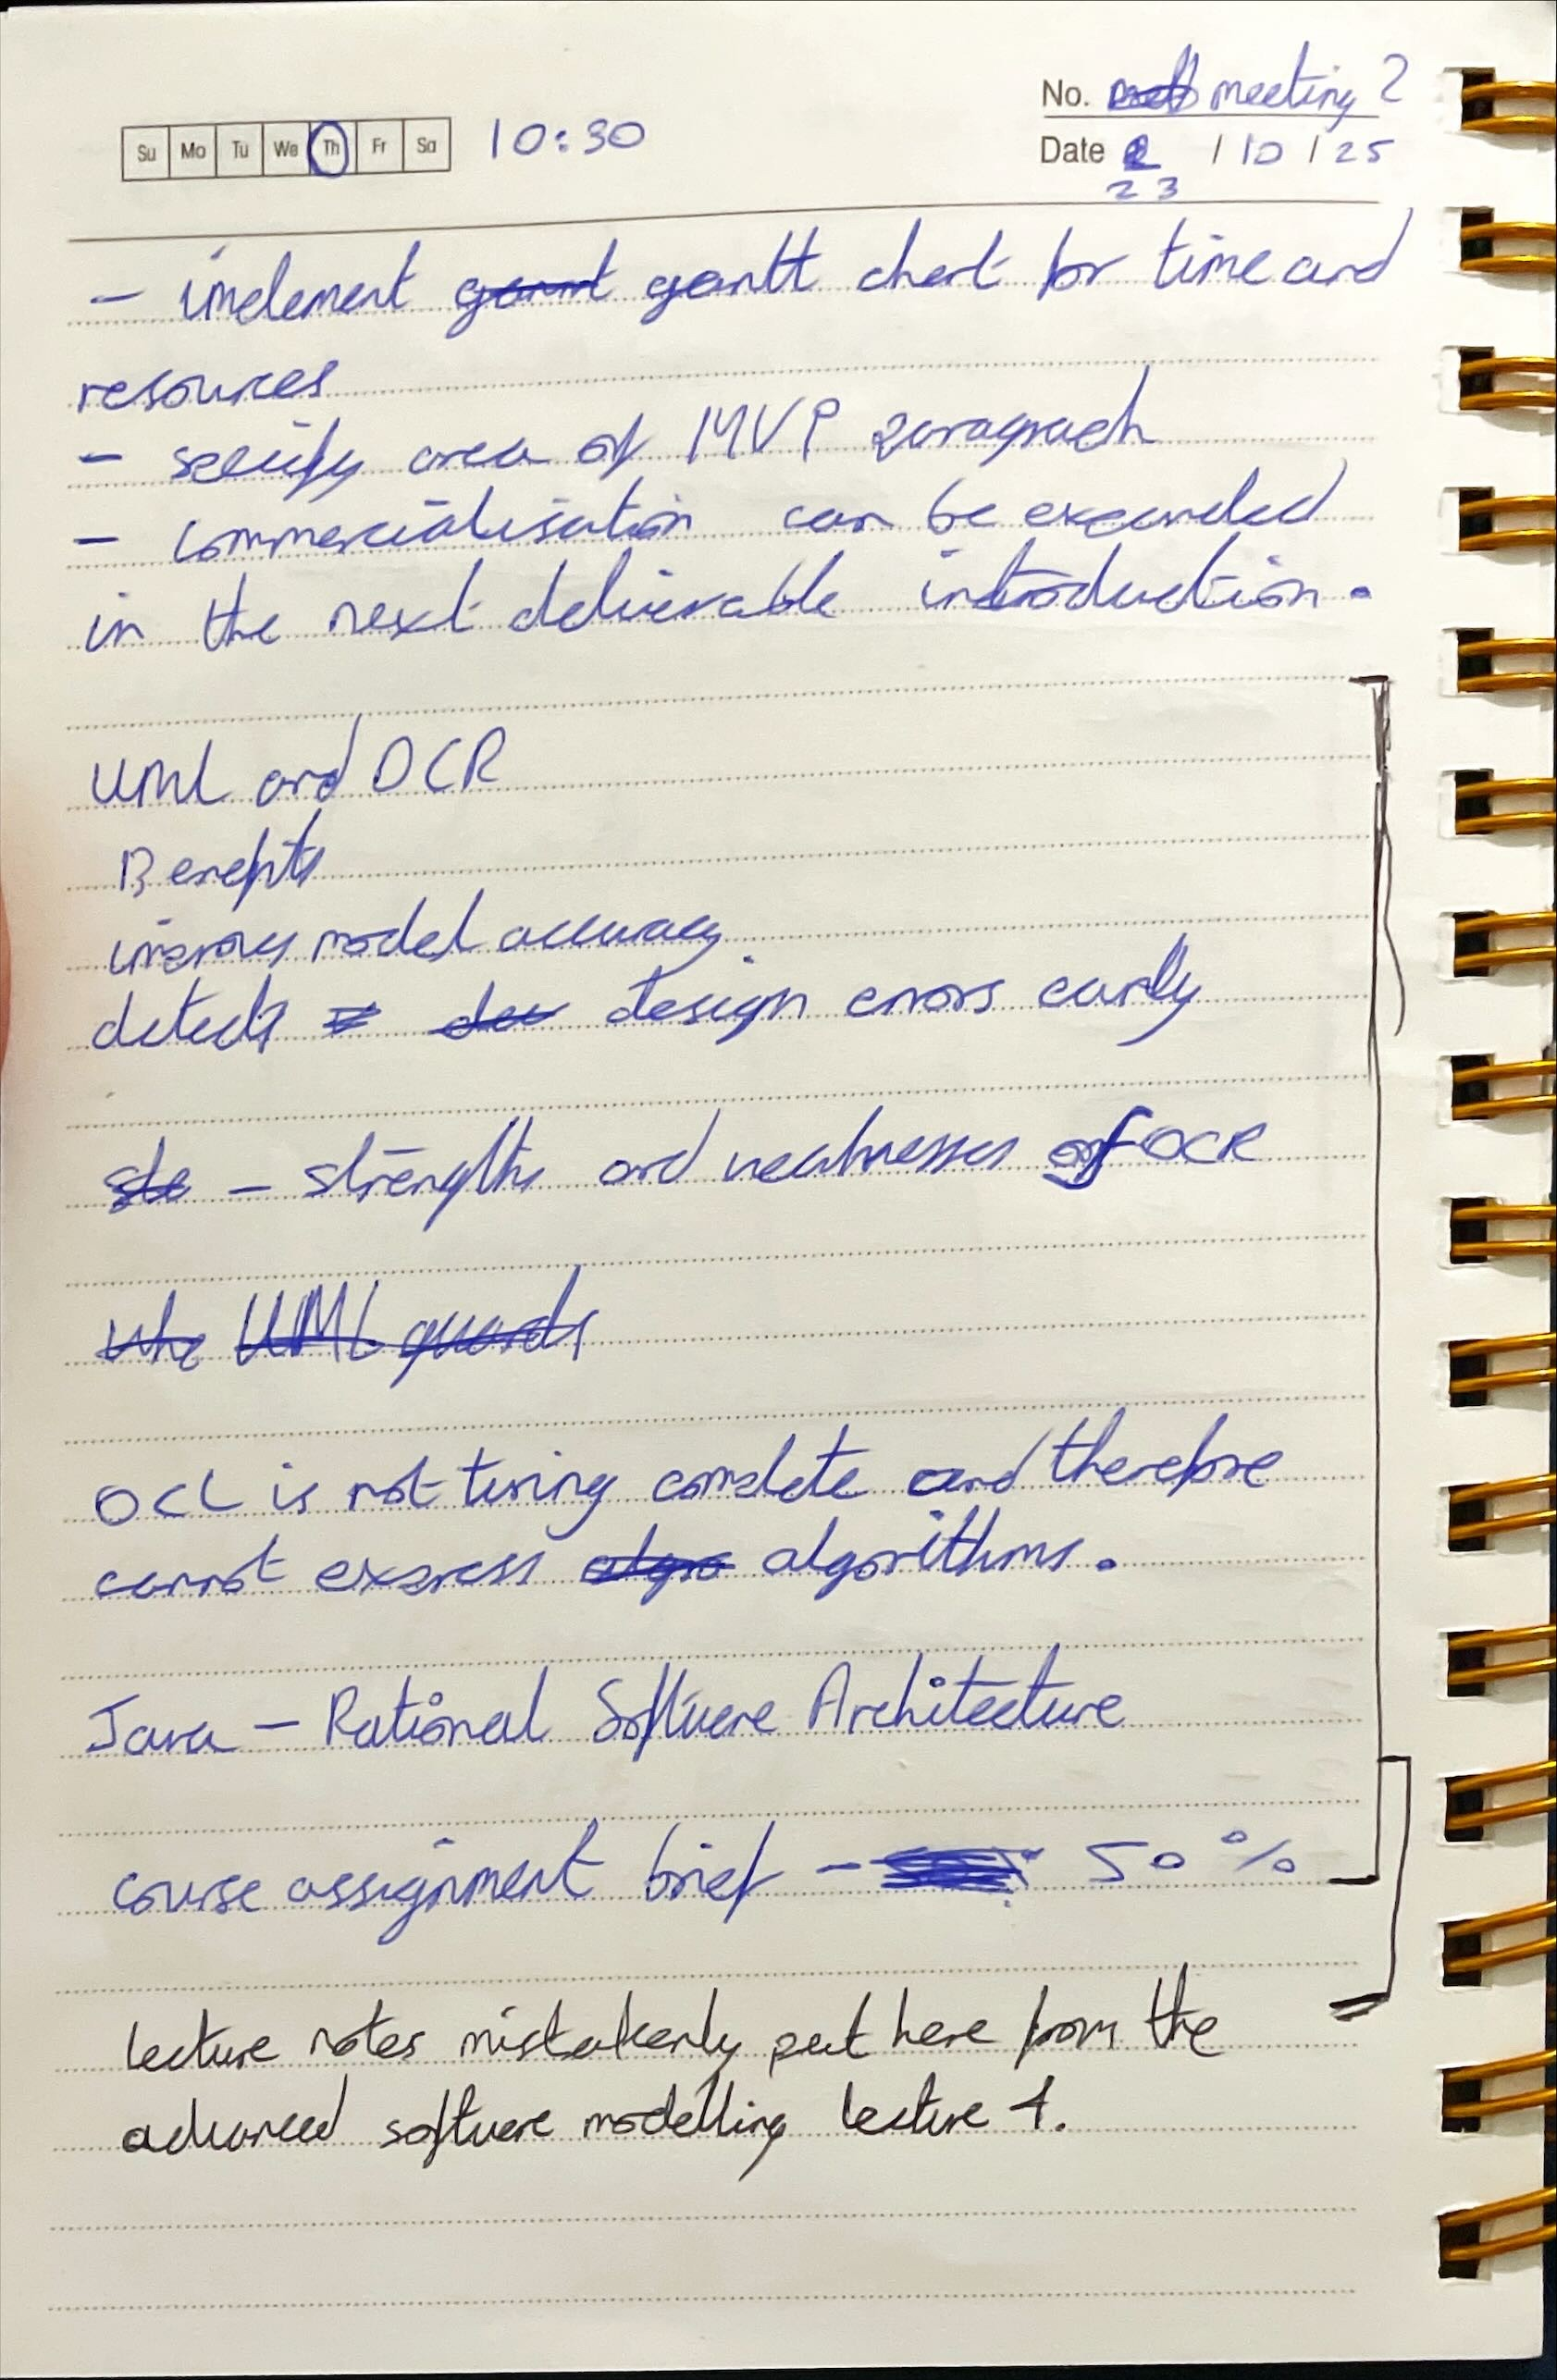 No. meeting 2
Su Mo Tu We Th Fr Sa 10:30
Date 23 / 10 / 25
- implement gantt gantt chart for time and
resources
- specify area of MVP paragraph
- commercialisation can be expanded
in the next deliverable introduction.
UML and OCR
Benefits
improves model accuracy
detects design errors early
ste - strengths and weaknesses of OCR
whe UML guards
OCL is not turing complete and therefore
cannot express algo algorithms.
Java - Rational Software Architecture
course assignment brief - 50%
lecture notes mistakenly put here from the
advanced software modelling lecture 4.